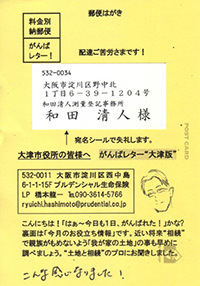 郵便はがき
料金別
納郵便
がんば
レター!
配達ご苦労さまです!
532-0034
大阪市淀川区野中北
1丁目6-39-1204号
和田清人測量登記事務所
和田 清人 様
宛名シールで失礼します。
POST CARD
大津市役所の皆様へ がんばレター“大津版”
532-0011 大阪市淀川区西中島
6-1-1-15F プルデンシャル生命保険
LP 橋本龍一 ℡090-3614-5766
ryuichi.hashimoto@prudential.co.jp
こんにちは!「はぁ~今日も1日、がんばれた!」かな?
裏面は「今月のお役立ち情報」です。近い将来“相続”
で親族がもめないよう「我が家の土地」の事も早めに
調べましょう。“土地と相続”のプロにお聞きしました。
こんな感じになりました!